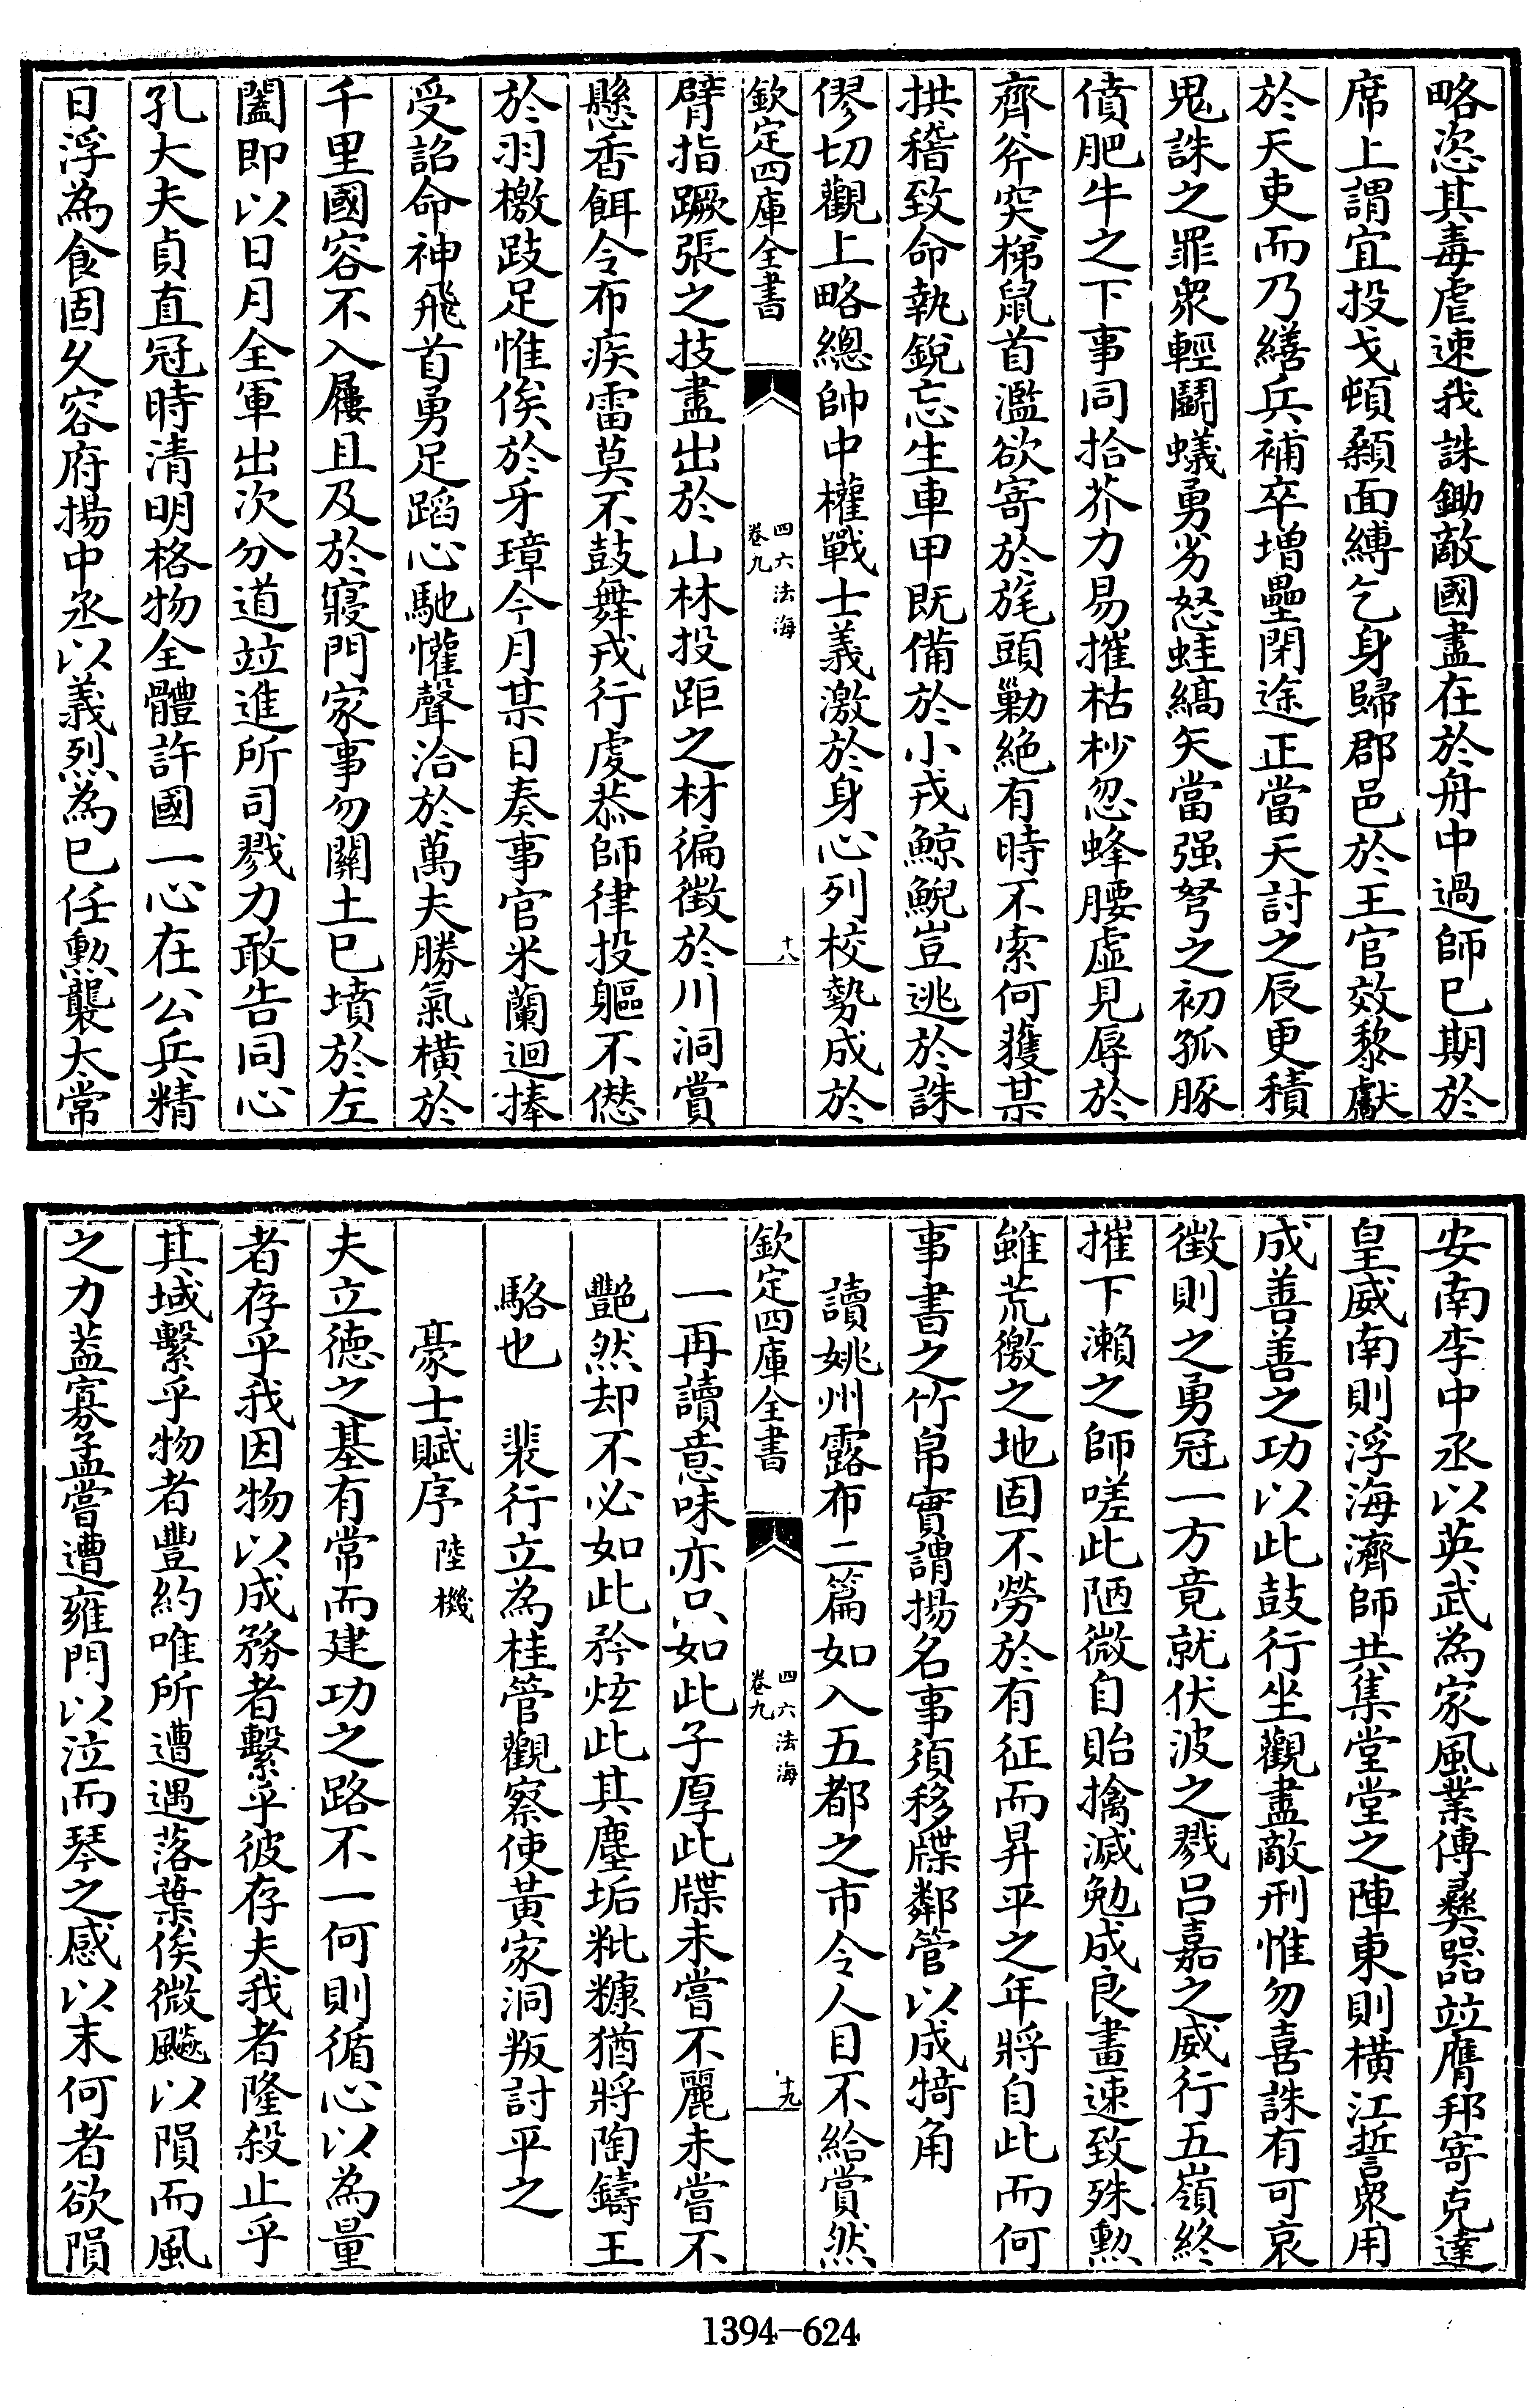 略恣其毒虐速我誅鋤敵國盡在於舟中過師已期於
席上謂宜投戈頓顙面縛乞身歸郡邑於王官效黎獻
於天吏而乃繕兵補卒增壘閉途正當天討之辰更積
鬼誅之罪衆輕鬪蟻勇劣怒蛙縞矢當强弩之初孤豚
僨肥牛之下事同拾芥力易摧枯杪忽蜂腰虛見辱於
齊斧突梯鼠首濫欲寄於旄頭勦絶有時不索何獲某
拱稽致命執銳忘生車甲既備於小戎鯨鯢豈逃於誅
僇切觀上略總帥中權戰士義激於身心列校勢成於
欽定四庫全書
四六法海
卷九
十八
臂指蹶張之技盡出於山林投距之材徧徵於川洞賞
懸香餌令布疾雷莫不鼓舞戎行虔恭師律投軀不僽
於羽檄跂足惟俟於牙璋今月某日奏事官米蘭迴捧
受詔命神飛首勇足蹈心馳懽聲洽於萬夫勝氣橫於
千里國容不入屨且及於寢門家事勿關土已墳於左
闔即以日月全軍出次分道竝進所司戮力敢告同心
孔大夫貞直冠時清明格物全體許國一心在公兵精
日浮為食固乆容府揚中丞以義烈為已任勲襲太常
安南李中丞以英武為家風業傳彞器竝膺邦寄克達
皇威南則浮海濟師共集堂堂之陣東則橫江誓衆用
成善善之功以此鼓行坐觀盡敵刑惟勿喜誅有可哀
徵則之勇冠一方竟就伏波之戮吕嘉之威行五嶺終
摧下瀨之師嗟此陋微自貽擒滅勉成良畫速致殊勲
雖荒徼之地固不勞於有征而昇平之年將自此而何
事書之竹帛實謂揚名事須移牒鄰管以成犄角
讀姚州露布二篇如入五都之市令人目不給賞然
欽定四庫全書
四六法海
卷九
十九
一再讀意味亦只如此子厚此牒未嘗不麗未嘗不
艷然却不必如此矜炫此其塵垢粃糠猶將陶鑄王
駱也　裴行立為桂管觀察使黃家洞叛討平之
豪士賦序　陸機
夫立德之基有常而建功之路不一何則循心以為量
者存乎我因物以成務者繫乎彼存夫我者隆殺止乎
其域繫乎物者豐約唯所遭遇落葉俟微飈以隕而風
之力葢寡孟嘗遭雍門以泣而琴之感以末何者欲隕
1394-624